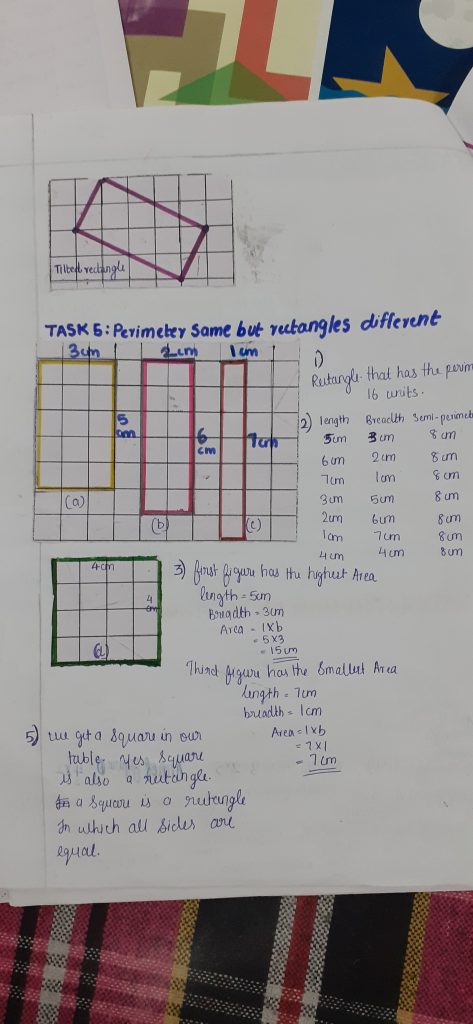 Tilted rectangle
TASK 5: Perimeter Same but rectangles different
3cm 2cm 1cm
5
cm
6
cm
7cm
(a)
(b)
(c)
1)
Rectangle that has the perim
16 units.
2) length Breadth Semi-perimet
5cm 3cm 8cm
6cm 2cm 8cm
7cm 1cm 8cm
3cm 5cm 8cm
2cm 6cm 8cm
1cm 7cm 8cm
4cm 4cm 8cm
4cm
4
cm
(d)
3) first figure has the highest Area
length = 5cm
Breadth = 3cm
Area = l×b
= 5×3
= 15cm
Third figure has the Smallest Area
length = 7cm
breadth = 1cm
Area = l×b
= 7×1
= 7cm
5) we get a Square in our
table yes square
is also a rectangle.
a Square is a rectangle
In which all sides are
equal.